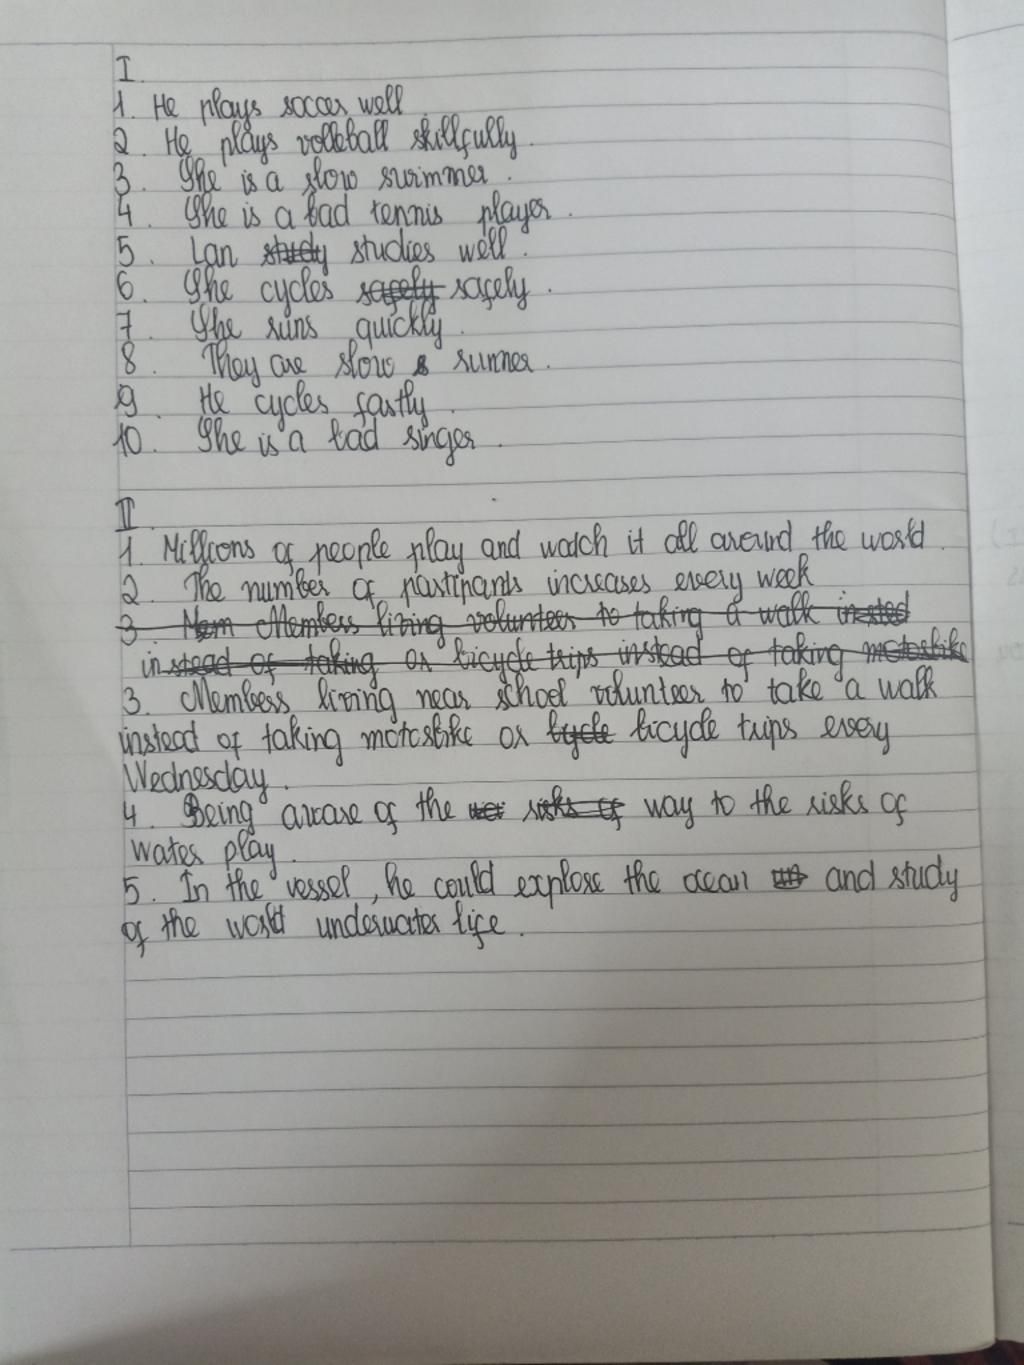 I.
1. He plays soccer well.
2. He plays volleball skillfully.
3. She is a slow swimmer.
4. She is a bad tennis player.
5. Lan study studies well.
6. She cycles safely safely.
7. She runs quickly.
8. They are slow runner.
9. He cycles fastly.
10. She is a bad singer.
II.
1. Millions of people play and watch it all around the world.
2. The number of partipants increases every week
3. Mem Members living volunteer to taking a walk insted
instead of taking or bicycle trips instead of taking motorbike
3. Members living near school volunteer to take a walk
instead of taking motorbike or bycle bicycle trips every
Wednesday.
4. Being aware of the risks of way to the risks of
water play.
5. In the vessel, he could explore the ocean and study
of the world underwater life.